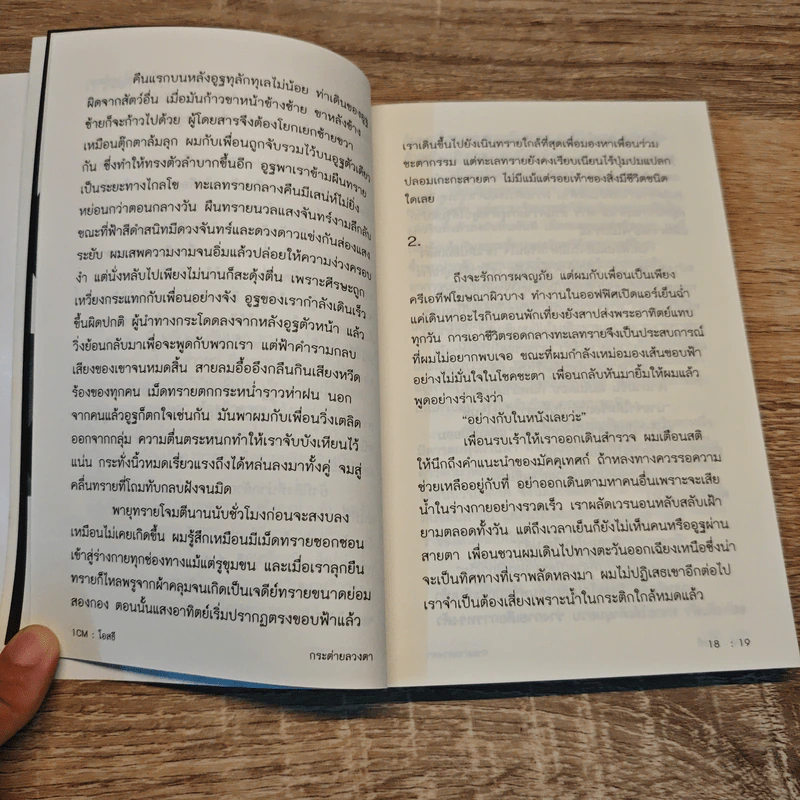 คืนแรกบนหลังอูฐทุลักทุเลไม่น้อย ท่าเดินของอูฐ
ผิดจากสัตว์อื่น เมื่อมันก้าวขาหน้าข้างซ้าย ขาหลังข้าง
ซ้ายก็จะก้าวไปด้วย ผู้โดยสารจึงต้องโยกเยกซ้ายขวา
เหมือนตุ๊กตาล้มลุก ผมกับเพื่อนถูกจับรวมไว้บนอูฐตัวเดียว
กัน ซึ่งทำให้ทรงตัวลำบากขึ้นอีก อูฐพาเราข้ามผืนทราย
เป็นระยะทางไกลโข ทะเลทรายกลางคืนมีเสน่ห์ไม่ยิ่ง
หย่อนกว่าตอนกลางวัน ผืนทรายนวลแสงจันทร์งามลึกลับ
ขณะที่ฟ้าสีดำสนิทมีดวงจันทร์และดวงดาวแข่งกันส่องแสง
ระยับ ผมเสพความงามจนอิ่มแล้วปล่อยให้ความง่วงครอบ
งำ แต่นั่งหลับไปเพียงไม่นานก็สะดุ้งตื่น เพราะศีรษะถูก
เหวี่ยงกระแทกกับเพื่อนอย่างจัง อูฐของเรากำลังเดินเร็ว
ขึ้นผิดปกติ ผู้นำทางกระโดดลงจากหลังอูฐตัวหน้า แล้ว
วิ่งย้อนกลับมาเพื่อจะพูดกับพวกเรา แต่ฟ้าคำรามกลบ
เสียงของเขาจนหมดสิ้น สายลมอื้ออึงกลืนกินเสียงหวีด
ร้องของทุกคน เม็ดทรายตกกระหน่ำราวห่าฝน นอก
จากคนแล้วอูฐก็ตกใจเช่นกัน มันพาผมกับเพื่อนวิ่งเตลิด
ออกจากกลุ่ม ความตื่นตระหนกทำให้เราจับบังเหียนไว้
แน่น กระทั่งนิ้วหมดเรี่ยวแรงถึงได้หล่นลงมาทั้งคู่ จมสู่
คลื่นทรายที่โถมทับกลบฝังจนมิด
พายุทรายโจมตีนานนับชั่วโมงก่อนจะสงบลง
เหมือนไม่เคยเกิดขึ้น ผมรู้สึกเหมือนมีเม็ดทรายชอกชอน
เข้าสู่ร่างกายทุกช่องทางแม้แต่รูขุมขน และเมื่อเราลุกยืน
ทรายก็ไหลพรูจากผ้าคลุมจนเกิดเป็นเจดีย์ทรายขนาดย่อม
สองกอง ตอนนั้นแสงอาทิตย์เริ่มปรากฏตรงขอบฟ้าแล้ว
1CM : โอสธี
กระต่ายลวงตา
เราเดินขึ้นไปยังเนินทรายใกล้ที่สุดเพื่อมองหาเพื่อนร่วม
ชะตากรรม แต่ทะเลทรายยังคงเรียบเนียนไร้ปุ่มปมแปลก
ปลอมเกะกะสายตา ไม่มีแม้แต่รอยเท้าของสิ่งมีชีวิตชนิด
ใดเลย
2.
ถึงจะรักการผจญภัย แต่ผมกับเพื่อนเป็นเพียง
ครีเอทีฟโฆษณาผิวบาง ทำงานในออฟฟิศเปิดแอร์เย็นฉ่ำ
แค่เดินหาอะไรกินตอนพักเที่ยงยังสาปส่งพระอาทิตย์แทบ
ทุกวัน การเอาชีวิตรอดกลางทะเลทรายจึงเป็นประสบการณ์
ที่ผมไม่อยากพบเจอ ขณะที่ผมกำลังเหม่อมองเส้นขอบฟ้า
อย่างไม่มั่นใจในโชคชะตา เพื่อนกลับหันมายิ้มให้ผมแล้ว
พูดอย่างร่าเริงว่า
“อย่างกับในหนังเลยว่ะ”
เพื่อนรบเร้าให้เราออกเดินสำรวจ ผมเตือนสติ
ให้นึกถึงคำแนะนำของมัคคุเทศก์ ถ้าหลงทางควรรอความ
ช่วยเหลืออยู่กับที่ อย่าออกเดินตามหาคนอื่นเพราะจะเสีย
น้ำในร่างกายอย่างรวดเร็ว เราผลัดเวรนอนหลับสลับเฝ้า
ยามตลอดทั้งวัน แต่ถึงเวลาเย็นก็ยังไม่เห็นคนหรืออูฐผ่าน
สายตา เพื่อนชวนผมเดินไปทางตะวันออกเฉียงเหนือซึ่งน่า
จะเป็นทิศทางที่เราพลัดหลงมา ผมไม่ปฏิเสธเขาอีกต่อไป
เราจำเป็นต้องเสี่ยงเพราะน้ำในกระติกใกล้หมดแล้ว
18 : 19